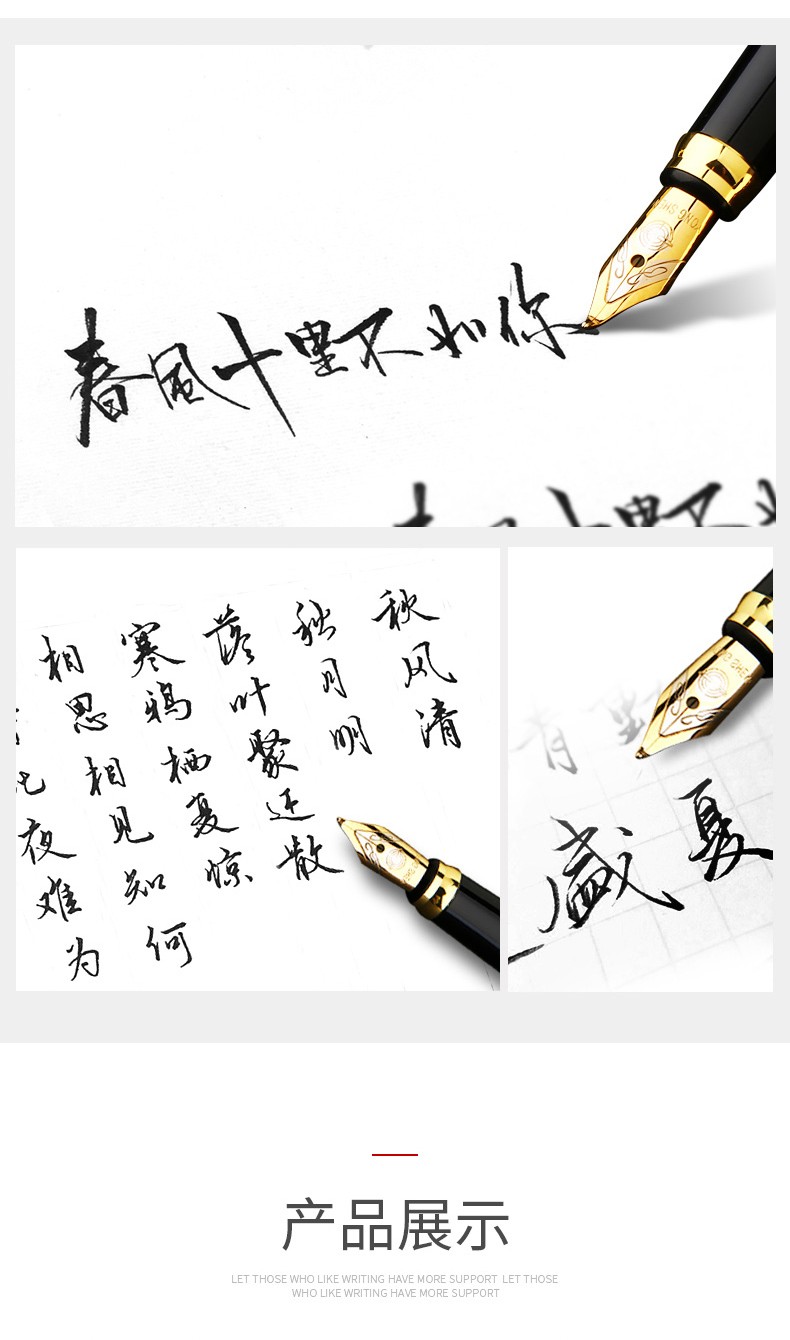 春風十里不如你
秋风清
秋月明
落叶聚还散
寒鸦栖复惊
相思相见知何
夜难为
盛夏
产品展示
LET THOSE WHO LIKE WRITING HAVE MORE SUPPORT LET THOSE
WHO LIKE WRITING HAVE MORE SUPPORT